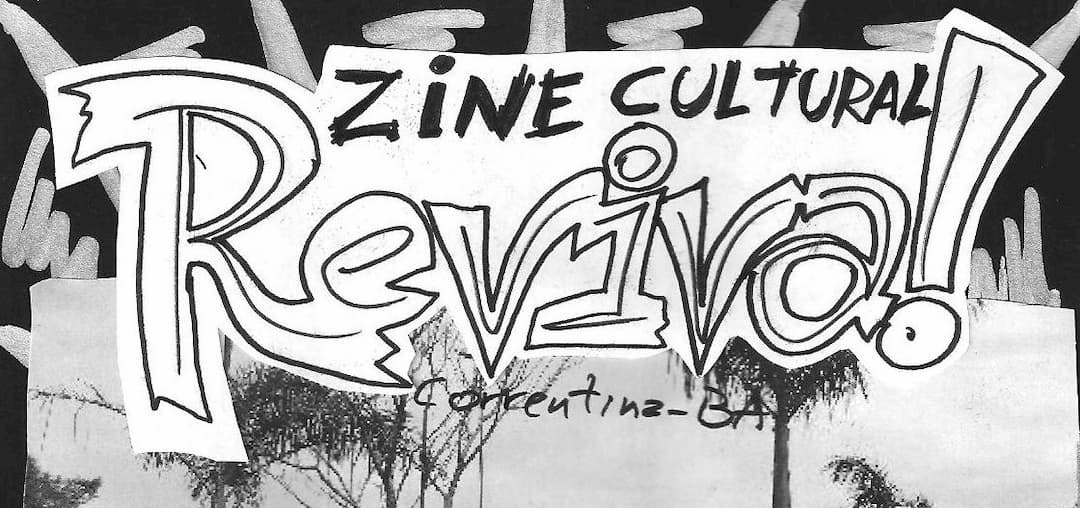 ZiNE CULTURAL
Reviva!
Correntina-BA